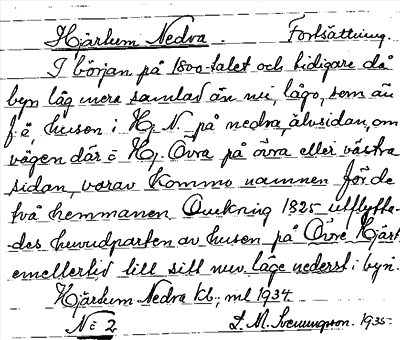 Hjärtum Nedra. Fortsättning.
I början på 1800-talet och tidigare då
byn låg mera samlad än nu, lågo, som än
f.ö husen i Hj. N. på nedra, älvsidan, om
vägen där ö Hj. Övra på övra eller västra
sidan, varav kommo namnen för de
två hemmanen Omkring 1825 utflytta-
des huvudparten av husen på Övre Hjärt.
emellertid till sitt nuv. läge nederst i byn.
Hjärtum Nedra kb, ml 1934
No 2 L. M. Svenungson. 1935-